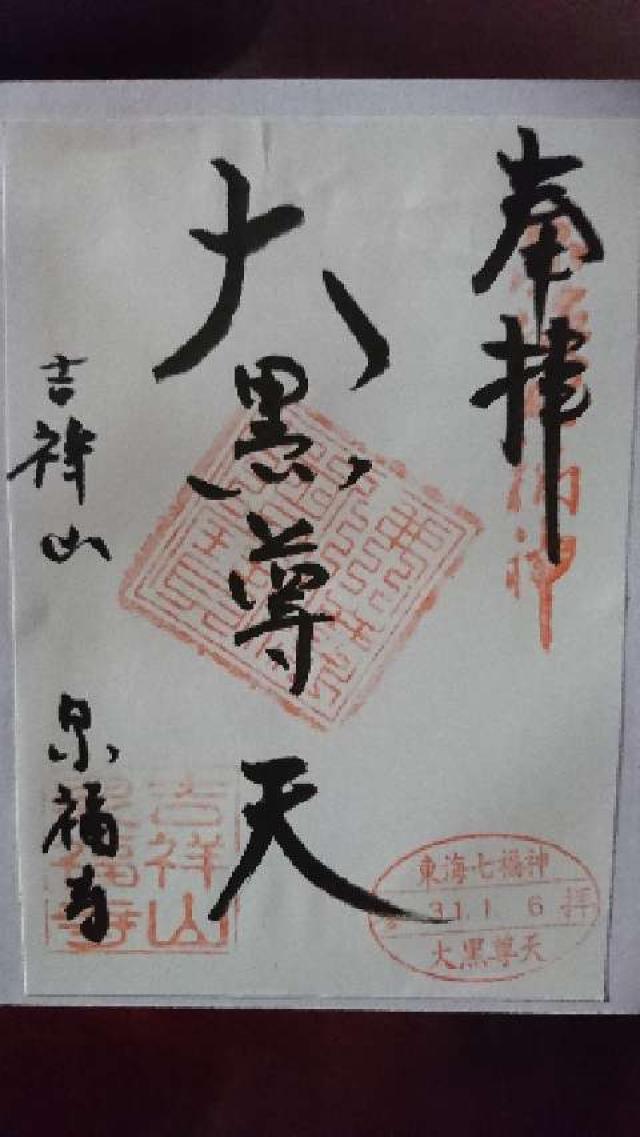 奉拝
大黒尊天
吉祥山
泉福寺
吉祥山
泉福寺
東海七福神
31.1.6
拝
大黒尊天